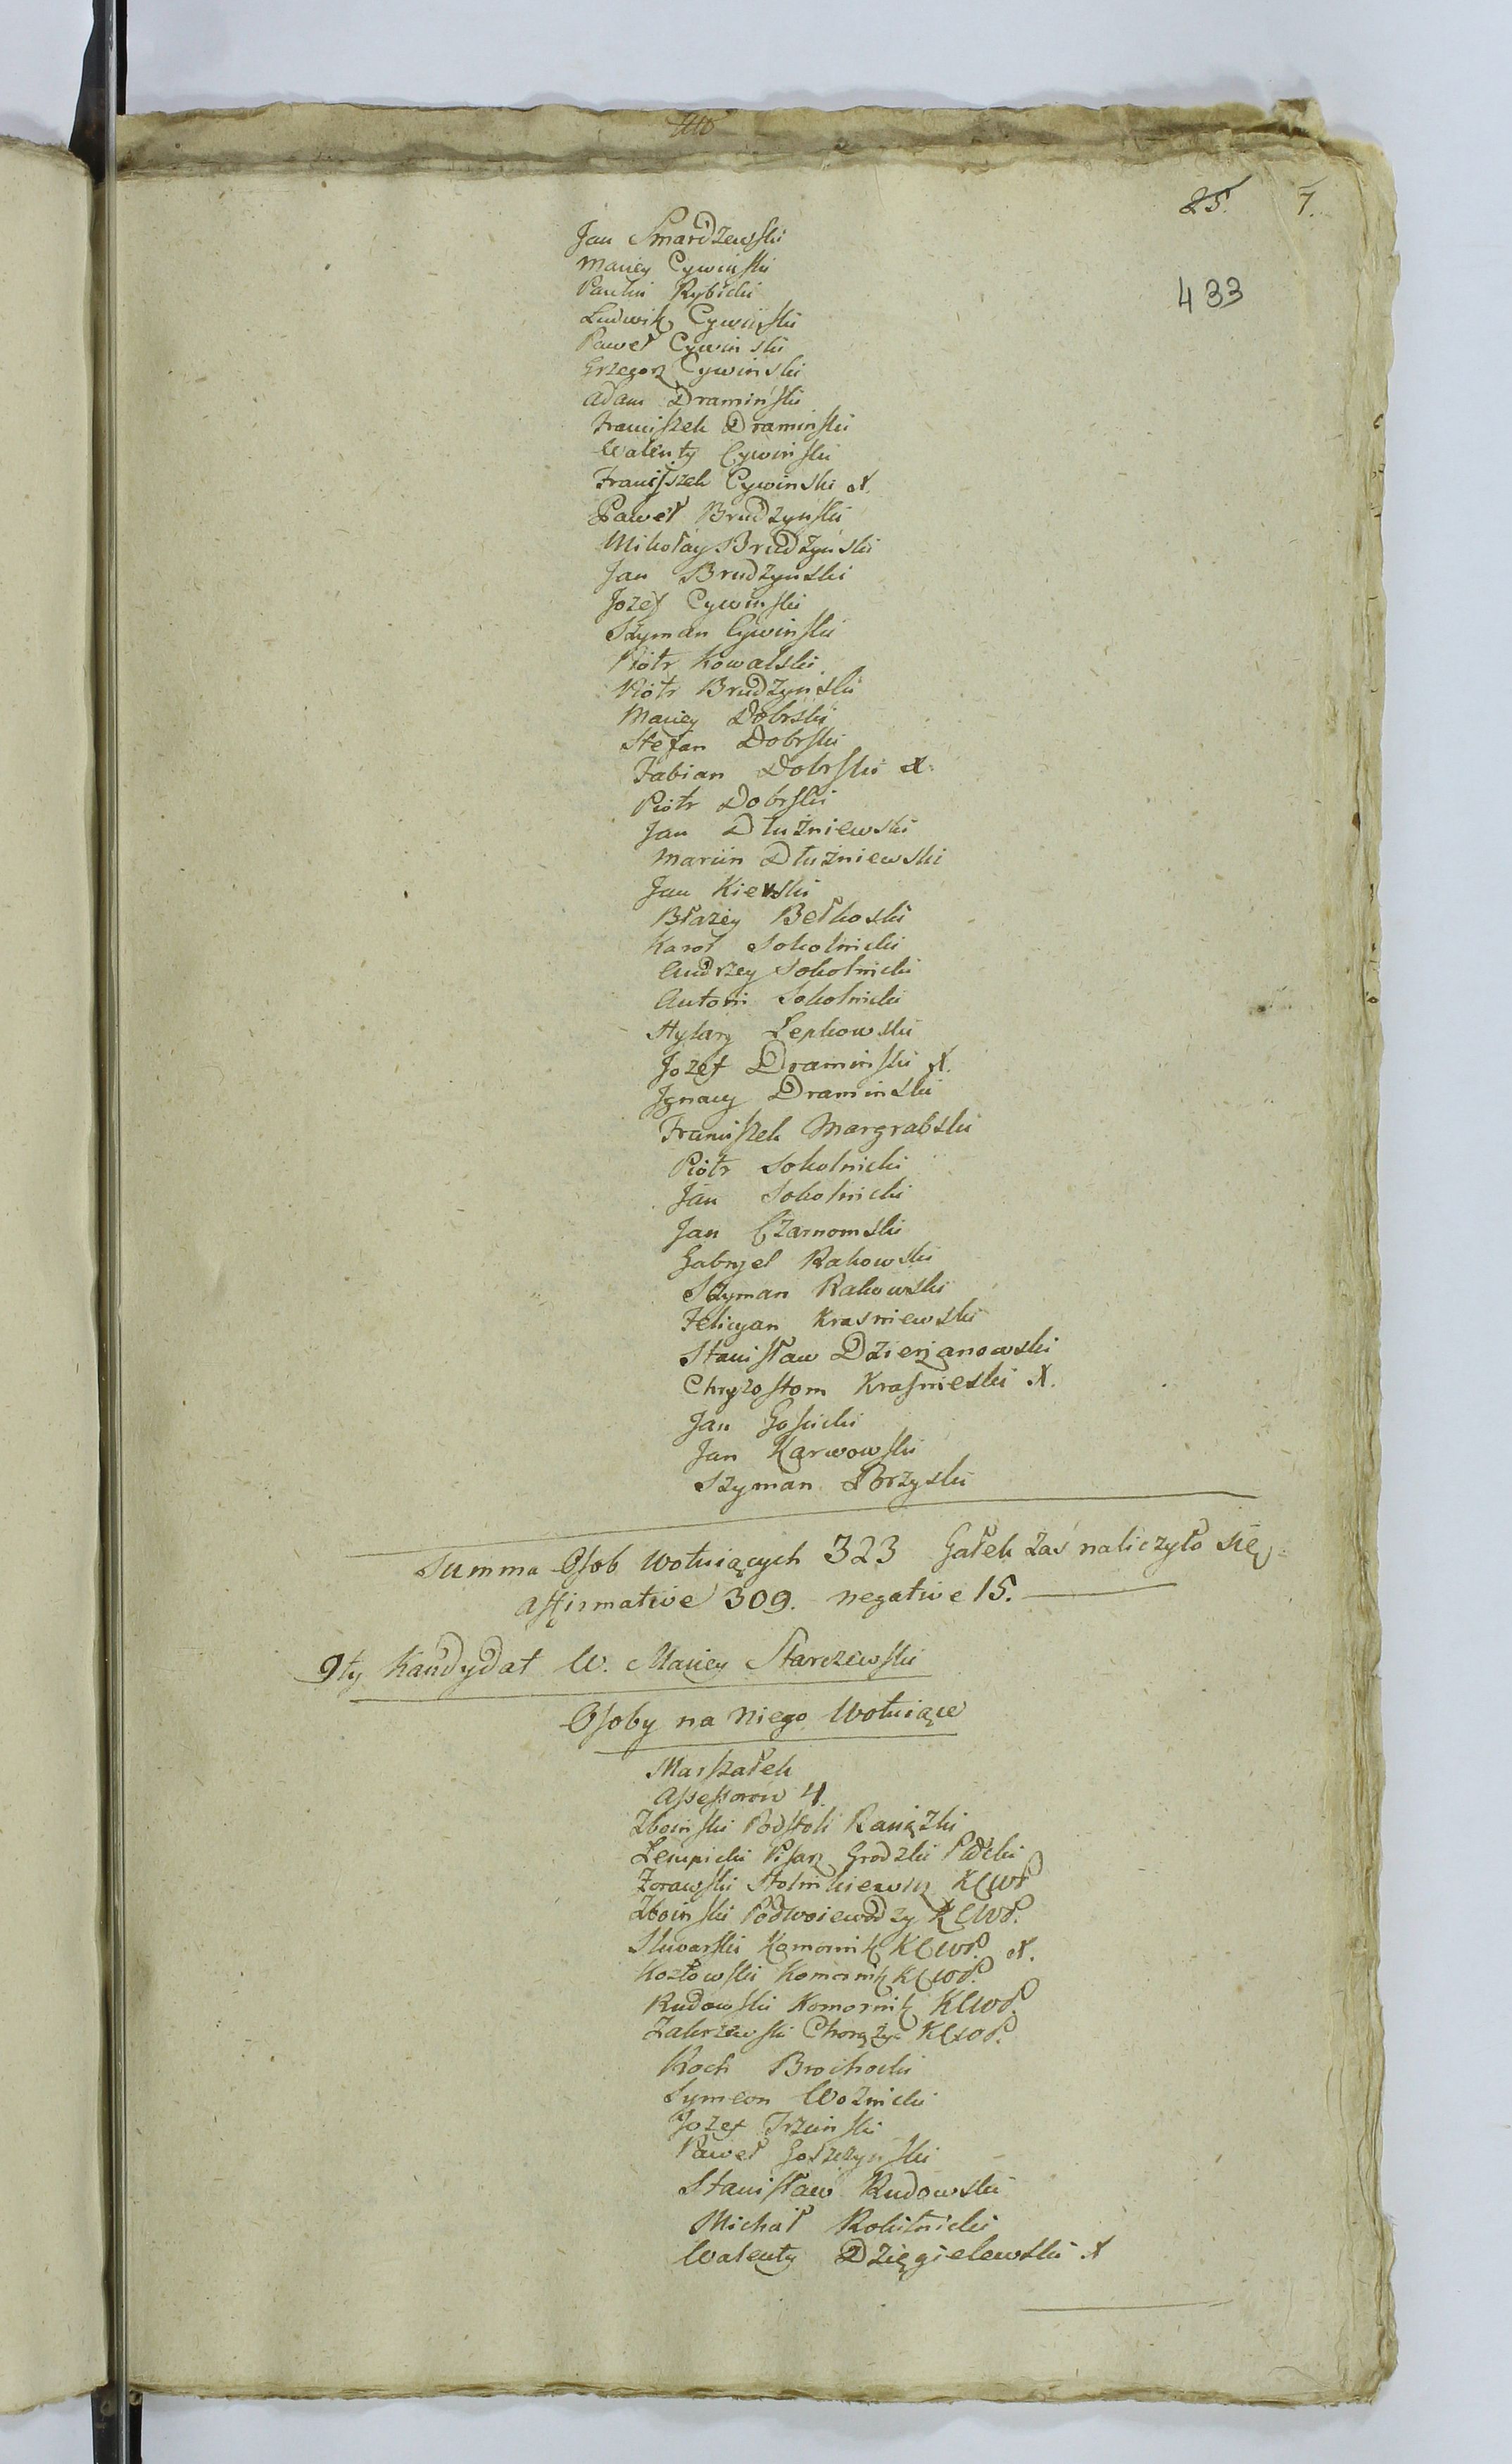 25. 7.
433
Jan Smardzewski
Maciey Cywinski
Paulin Rybicki
Ludwik Cywinski
Paweł Cywinski
Grzegorz Cywinski
Adam Dramiński
Franciszek Dramiński
Walenty Cywiński
Franciszek Cywinski X.
Paweł Brudzynski
Mikołay Brudzyński
Jan Brudzynski
Jozef Cywinski
Szyman Cywinski
Piotr Kowalski
Piotr Brudzyński
Maciey Dobrski
Stefan Dobrski
Fabian Dobrski X.
Piotr Dobrski
Jan Dłużniewski
Marcin Dłużniewski
Jan Kiewski
Błażey Bełkoski
Karol Sokolnicki
Andrzey Sokolnicki
Antoni Sokolnicki
Hylary Lepkowski
Jozef Dramiński X.
Jgnacy Draminski
Franciszek Margrabski
Piotr Sokolnicki
Jan Sokolnicki
Jan Czarnomski
Gabryel Rakowski
Szyman Rakowski
Felicyan Krasniewski
Stanisław Dzierżanowski
Chryzostom Krasnieski X.
Jan Gosicki
Jan Karwowski
Szyman Borzyski
Summa Osob Wotuiących 323 Gałek zaś naliczyło się
Affirmative 309. negative 15.
9ty Kandydat W. Maciey Starczewski
Osoby na Niego Wotuiące
Marszałek
Assessorow 4
Zboinski Podstoli Raciązki
Lempicki Pisarz Grodzki Płcki
Zorawski Stolnikiewicz KCWP
Zboinski Podwoiewodzy KCWP.
Skwarski Komornik KCWP. X.
Kozłowski Komornik KCWP.
Rudowski Komornik KCWP.
Zakrzewski Chorążyc KCWP.
Roch Brochocki
Symeon Woznicki
Jozef Trzcinski
Paweł Goszczynski
Stanisław Rudowski
Michał Rokitnicki
Walenty Dzięgielewski X